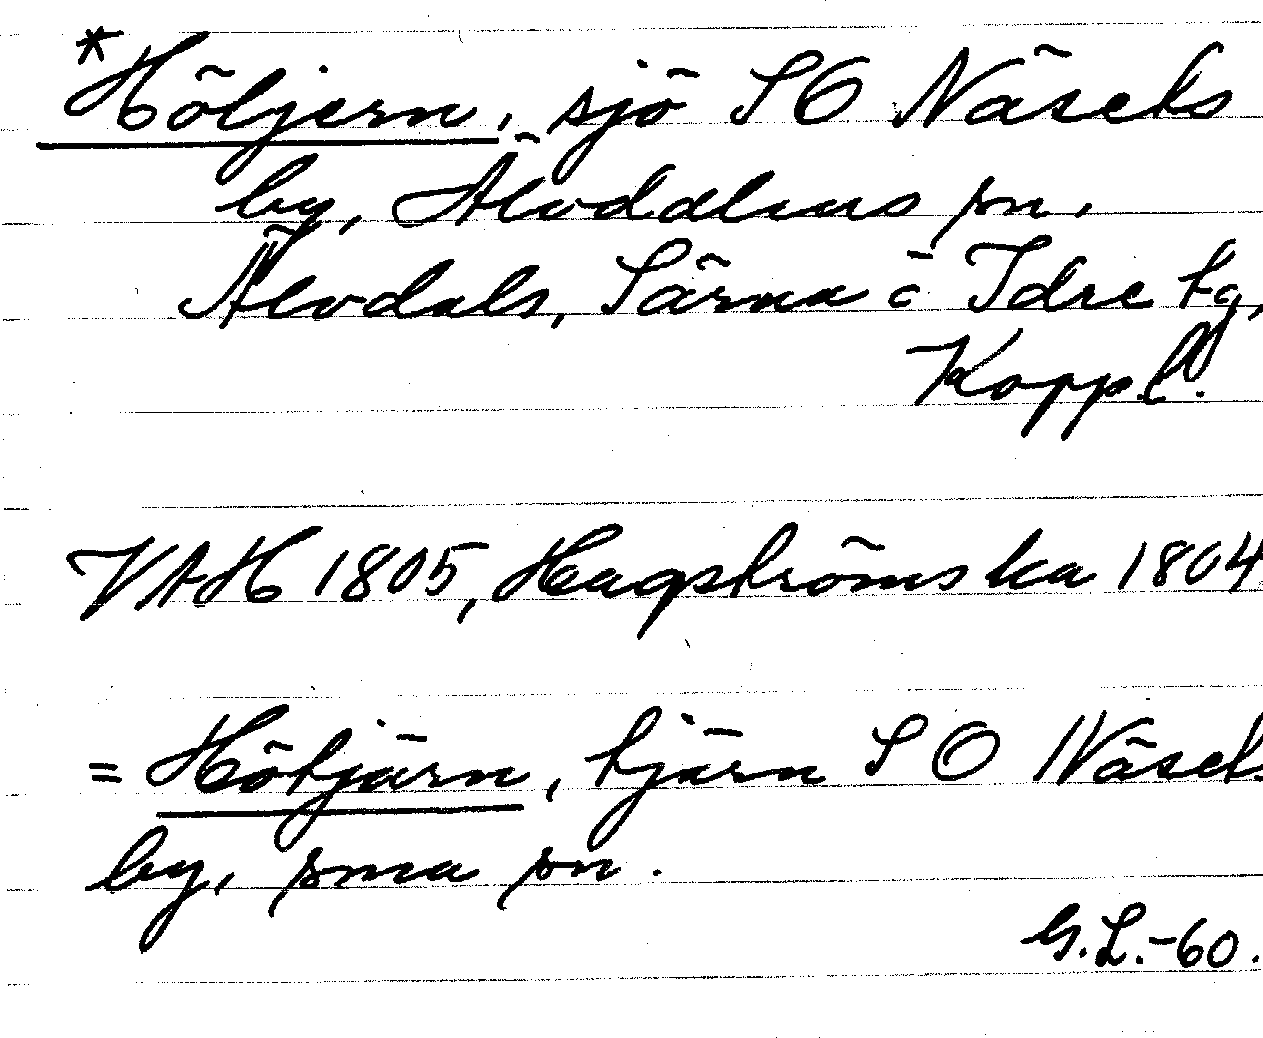 *Hötjern, sjö SO Näsets
by, Älvdalens sn.
Älvdals, Särna o Idre tg,
Koppl.
VAH 1805, Hagströms ka 1804
= Hötjärn, tjärn SO Näset.
by, sma sn.
G.L.-60.